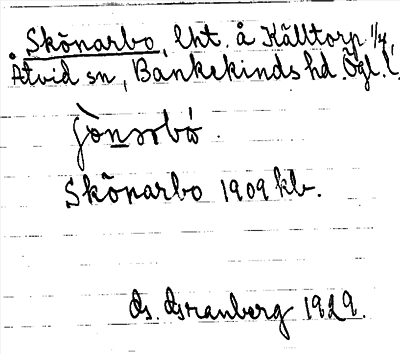 Skönarbo, lht. å Källtorp 1/4,
Åtvid sn, Bankekinds hd. Ögl. l.
Skönarbo 1909 kb.
Granberg 1929.